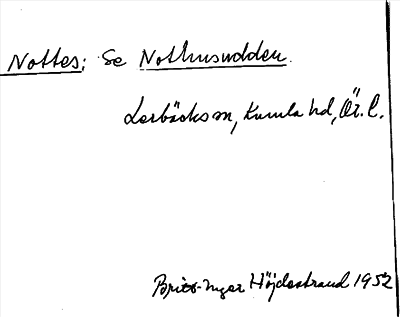 Nottes: Se Nothusudden.
Lerbäcks sn, Kumla hd, Ör. l.
Britt-Inger Höjdestrand 1952